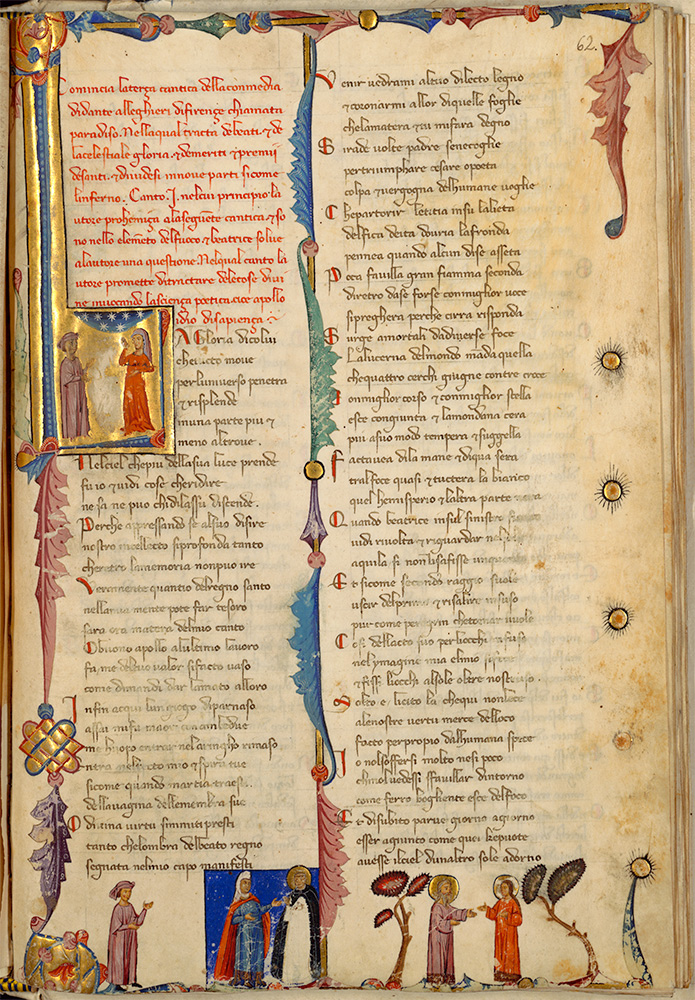 Comincia la terça cantica della conmedia
di dante alleghieri di firençe chiamata
paradiso. Nella qual tracta de beati. & de
la celestiale gloria. & de meriti & premii
de santi. & dividesi in nove parti sicome
linferno. Canto. I. nel cui principio la
utore prohemiça a la seguente cantica & so
no nello elemento del fuoco & beatrice solve
al autore una questione. Nel qual canto la
utore promette di tractare de le cose divi
ne invocando la sciença poetica. cioe apollo
idio di sapiença :
LA Gloria di colui
che tutto move
per luniverso penetra
& risplende
in una parte piu &
meno altrove.
Nel ciel che piu della sua luce prende
fu io & vidi cose che ridire
ne sa ne puo chi di lassu discende.
Perche apressando se al suo disire
nostro intellecto si profonda tanto
che retro la memoria non puo ire
Veramente quantio del regno santo
nella mia mente pote far tesoro
sara ora matera del mio canto
O buono apollo a lultimo lavoro
fa me del tuo valor si facto vaso
come dimandi dar lamato alloro
Infin a qui lun giogo di parnaso
assai mi fu ma or con ambedue
me huopo entrar nel aringho rimaso
Entra nel pecto mio & spira tue
sicome quando marsia traesti
della vagina delle membra sue
O divina virtu si mi ti presti
tanto che lombra del beato regno
segnata nel mio capo manifesti
62.
Venir vedrami al tuo dilecto legno
& coronarmi allor di quelle foglie
che la matera & tu mi fara degno
Si rade volte padre se ne coglie
per triumphare cesare o poeta
colpa & vergogna de lhumane voglie
Che partorir letitia in su la lieta
delfica deita dovria la fronda
pennea quando alcun di se asseta
Poca favilla gran fiamma seconda
diretro da se forse con miglior voce
si pregherra perche cirra risponda
Surge a mortali da diverse foce
la lucerna del mondo ma da quella
che quattro cerchi giugne con tre croce
Con miglior corso & con miglior stella
esce congiunta & la mondana cera
piu a suo modo tempera & suggella
Facto avea di la mane & di qua sera
tral foce quasi & tuctera la biancho
quel hemisperio & laltra parte nera
Quando beatrice in sul sinistro fianco
vidi rivolta & riguardar nel sole
aquila si non li safisse unquanco
Et sicome secondo raggio suole
uscir del primo & risalire insuso
pur come peregrin che tornar vuole
Cosi dellacto suo per li occhi infuso
nel ymagine mia el mio si fece
& fissi li occhi al sole oltre nostruso.
Molto e licito la che qui non lece
a le nostre vertu merce del loco
facto per propio dalhumana spece
Io nol soffersi molto ne si poco
chi nol vedessi sfavillar dintorno
come ferro bogliente esce del foco
Et di subito parve giorno a giorno
esser agiunto come quei ke puote
avesse il ciel dun altro sole adorno